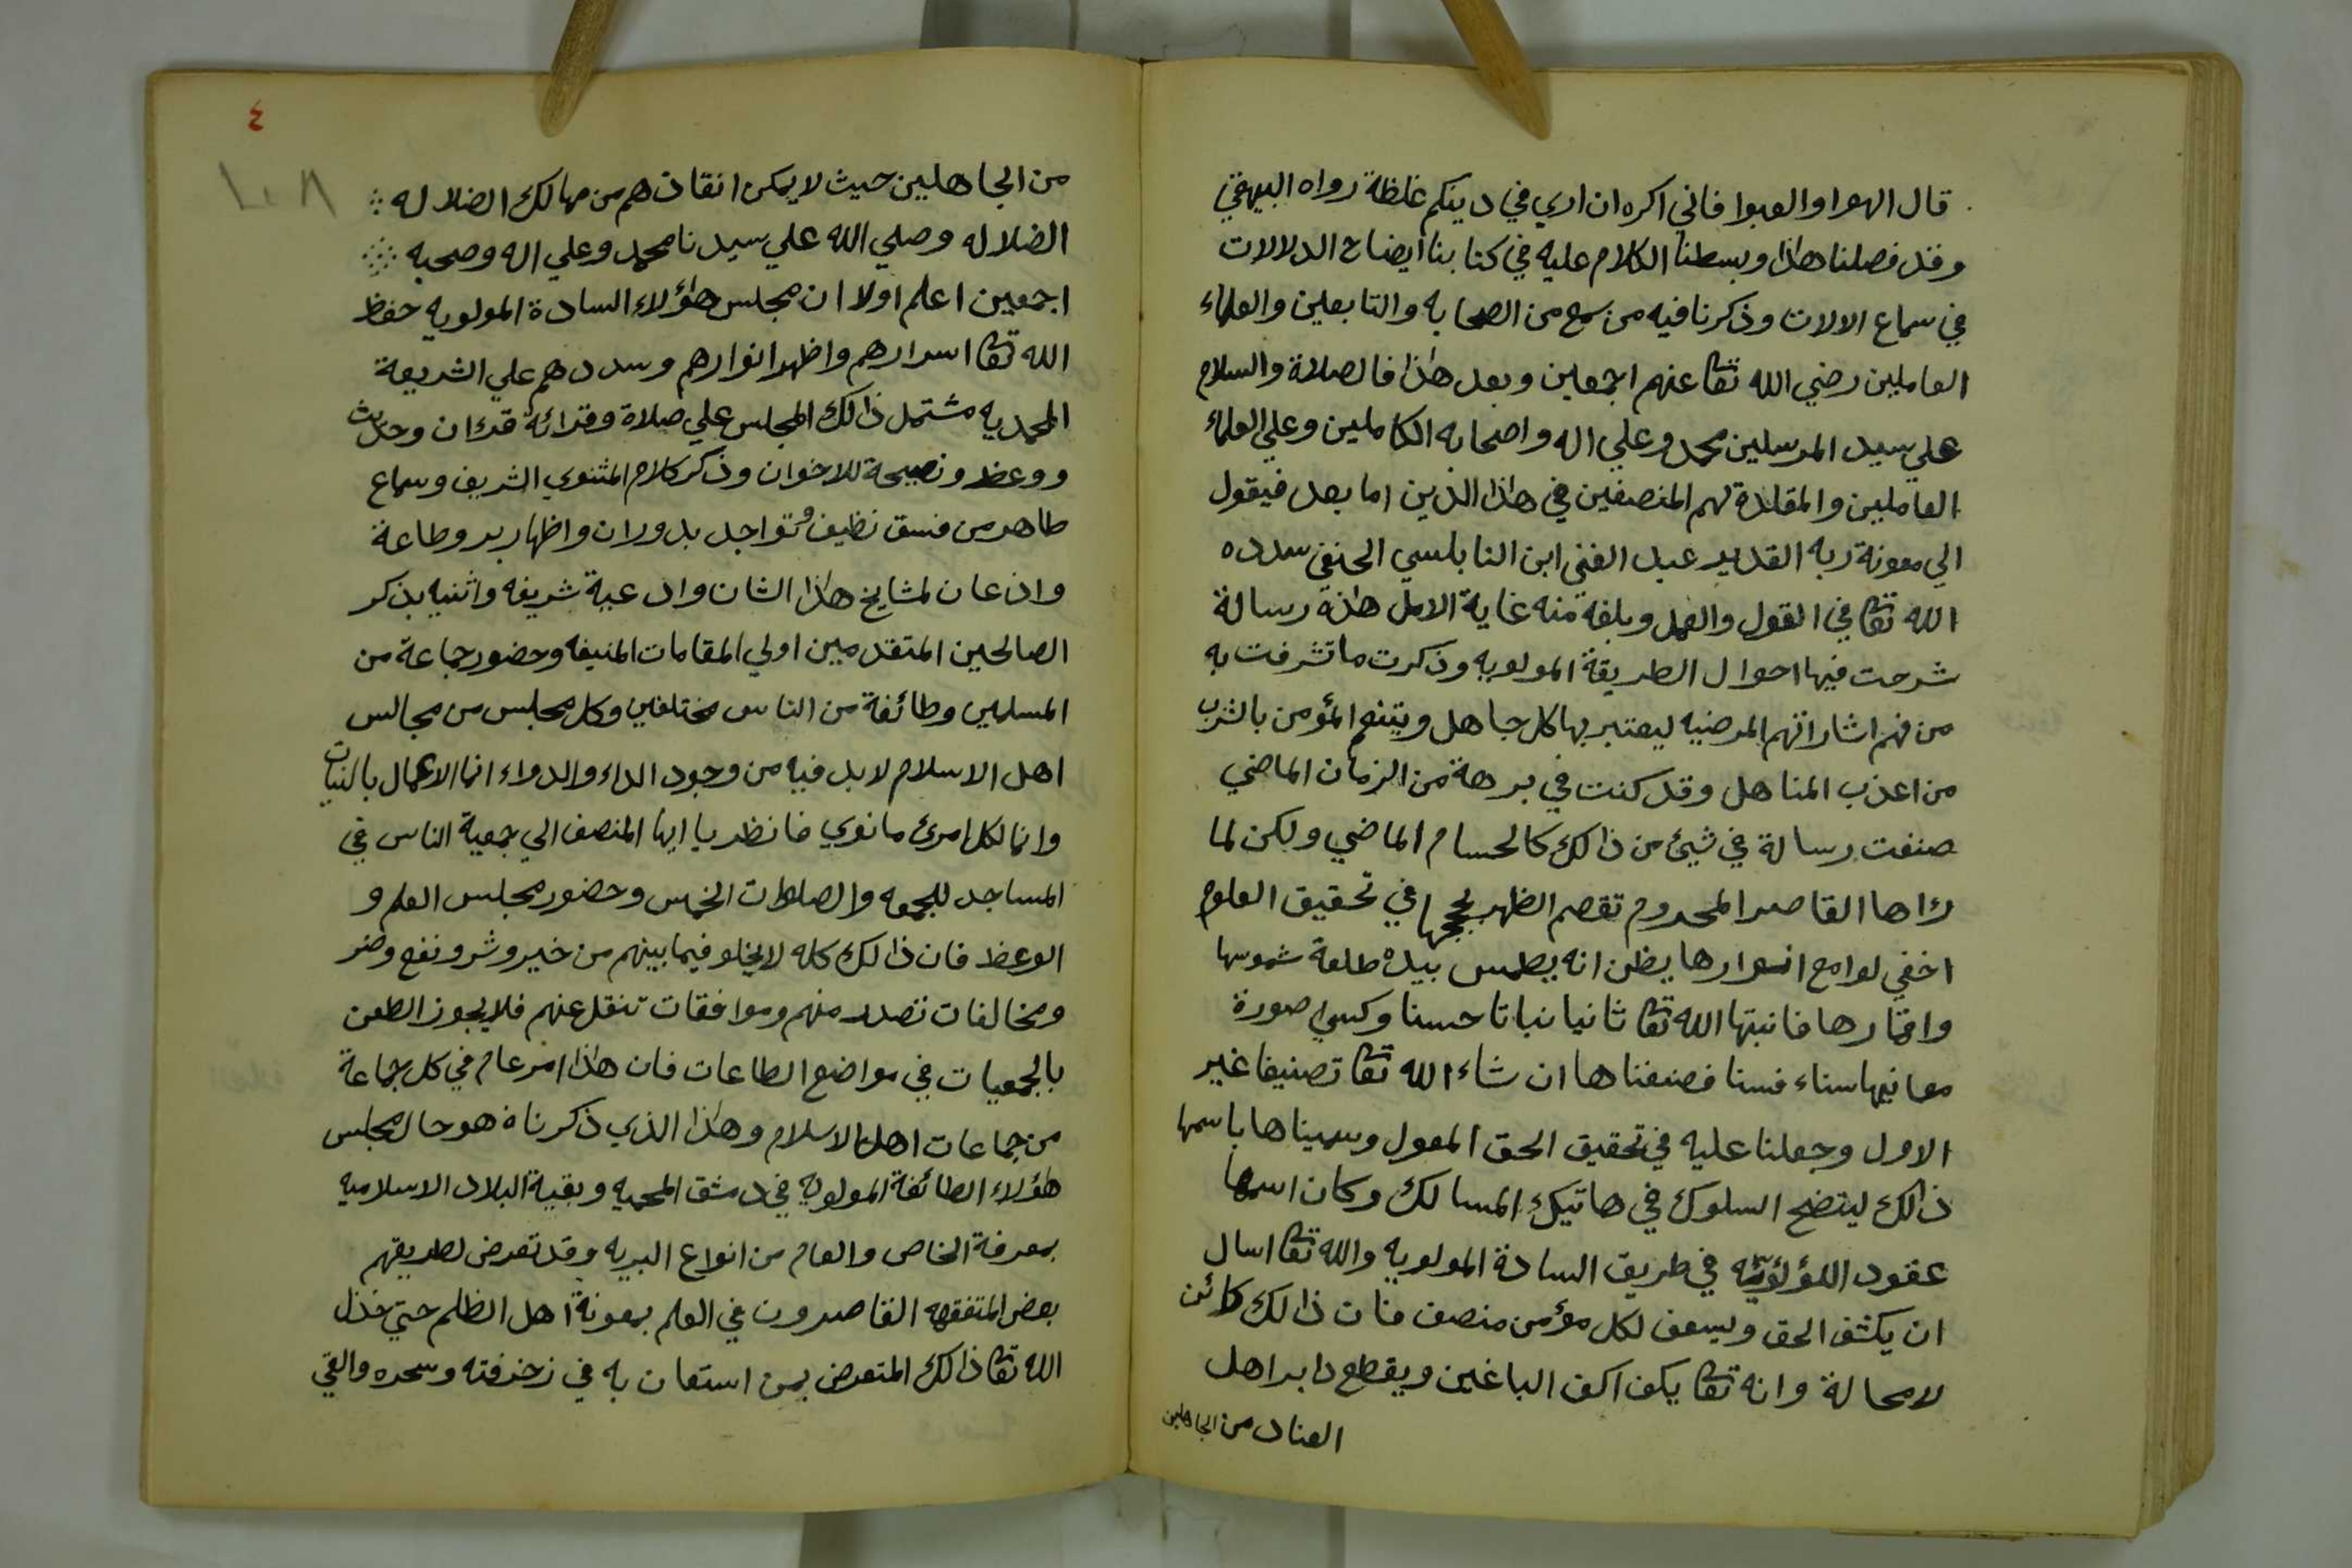 قال الهوا والعبوا فاني اكره ان اري في دينكم غلظة رواه البيهقي
وقد فصلنا هذا وبسطنا الكلام عليه في كتابنا ايضاح الدلالات
في سماع الالات وذكرنا فيه من سمع من الصحابه والتابعين والعلماء
العاملين رضي الله تعا عنهم اجمعين وبعد هذا فالصلاة والسلام
علي سيد المرسلين محمد وعلي اله واصحابه الكاملين وعلي العلماء
العاملين والمقلدة لهم المنصفين في هذا الدين اما بعد فيقول
الي معونة ربه القدير عبد الغني ابن النابلسي الحنفي سدده
الله تعا في القول والعمل وبلغه منه غاية الامل هذه رسالة
شرحت فيها احوال الطريقة المولويه وذكرت ما تشرفت به
من فهم اشاراتهم المرضيه ليعتبر بها كل جاهل وينتفع المؤمن بالشرب
من اعذب المناهل وقد كنت في برهة من الزمان الماضي
صنفت رسالة في شيئ من ذالك كالحسام الماضي ولكن لما
رءاها القاصر المحروم تقصم الظهر بججها في تحقيق العلوم
اخفي لوامع انوارها يظن انه يطمس بيده طلعة شموسها
واقمارها فانبتها الله تعا ثانيا نباتا حسنا وكسي صورة
معانيها سناء فسنا فصنفناها ان شاء الله تعا تصنيفا غير
الاول وجعلنا عليه في تحقيق الحق المعول وسميناها باسمها
ذالك ليتضح السلوك في هاتيك المسالك وكان اسمها
عقود اللؤلؤيه في طريق السادة المولويه والله تعا اسال
ان يكشف الحق ويسعف لكل مؤمن منصف فان ذالك كائن
لامحالة وانه تعا يكف اكف الباغين ويقطع دابر اهل
العناد من الجاهلين
٤
١٠٨
من الجاهلين حيث لايمكن انقاذهم من مهالك الضلاله
الضلاله وصلي الله علي سيدنا محمد وعلي اله وصحبه
اجمعين اعلم اولا ان مجلس هؤلاء السادة المولويه حفظ
الله تعا اسرارهم واظهر انوارهم وسددهم علي الشريعة
المحمديه مشتمل ذالك المجلس علي صلاة وقرائة قرءان وحديث
ووعظ ونصيحة للاخوان وذكر كلام المثنوي الشريف وسماع
طاهر من فسق نظيف وتواجد بدوران واظهار بر وطاعة
واذعان لمشايخ هذا الشان وادعية شريفه واثنيه بذكر
الصالحين المتقدمين اولي المقامات المنيفه وحضور جماعة من
المسلمين وطائفة من الناس مختلفين وكل مجلس من مجالس
اهل الاسلام لابد فيه من وجود الداء والدواء انما الاعمال بالنيات
وانما لكل امرئ مانوي فانظر يا ايها المنصف الي جمعية الناس في
المساجد للجمعه والصلوات الخمس وحضور مجلس العلم و
الوعظ فان ذالك كله لايخلو فيما بينهم من خير وشر ونفع وضر
ومخالفات تصدر منهم وموافقات تنقل عنهم فلايجوز الطعن
بالجمعيات في مواضع الطاعات فان هذا امر عام في كل جماعة
من جماعات اهل الاسلام وهذا الذي ذكرناه هو حال مجلس
هؤلاء الطائفة المولويه في دمشق المحميه وبقية البلاد الاسلاميه
بمعرفة الخاص والعام من انواع البريه وقد تعرض لطريقهم
بعض المتفقهه القاصرون في العلم بمعونة اهل الظلم حتي خذل
الله تعا ذالك المتعرض بمن استعان به في زخرفته وسحره والقي